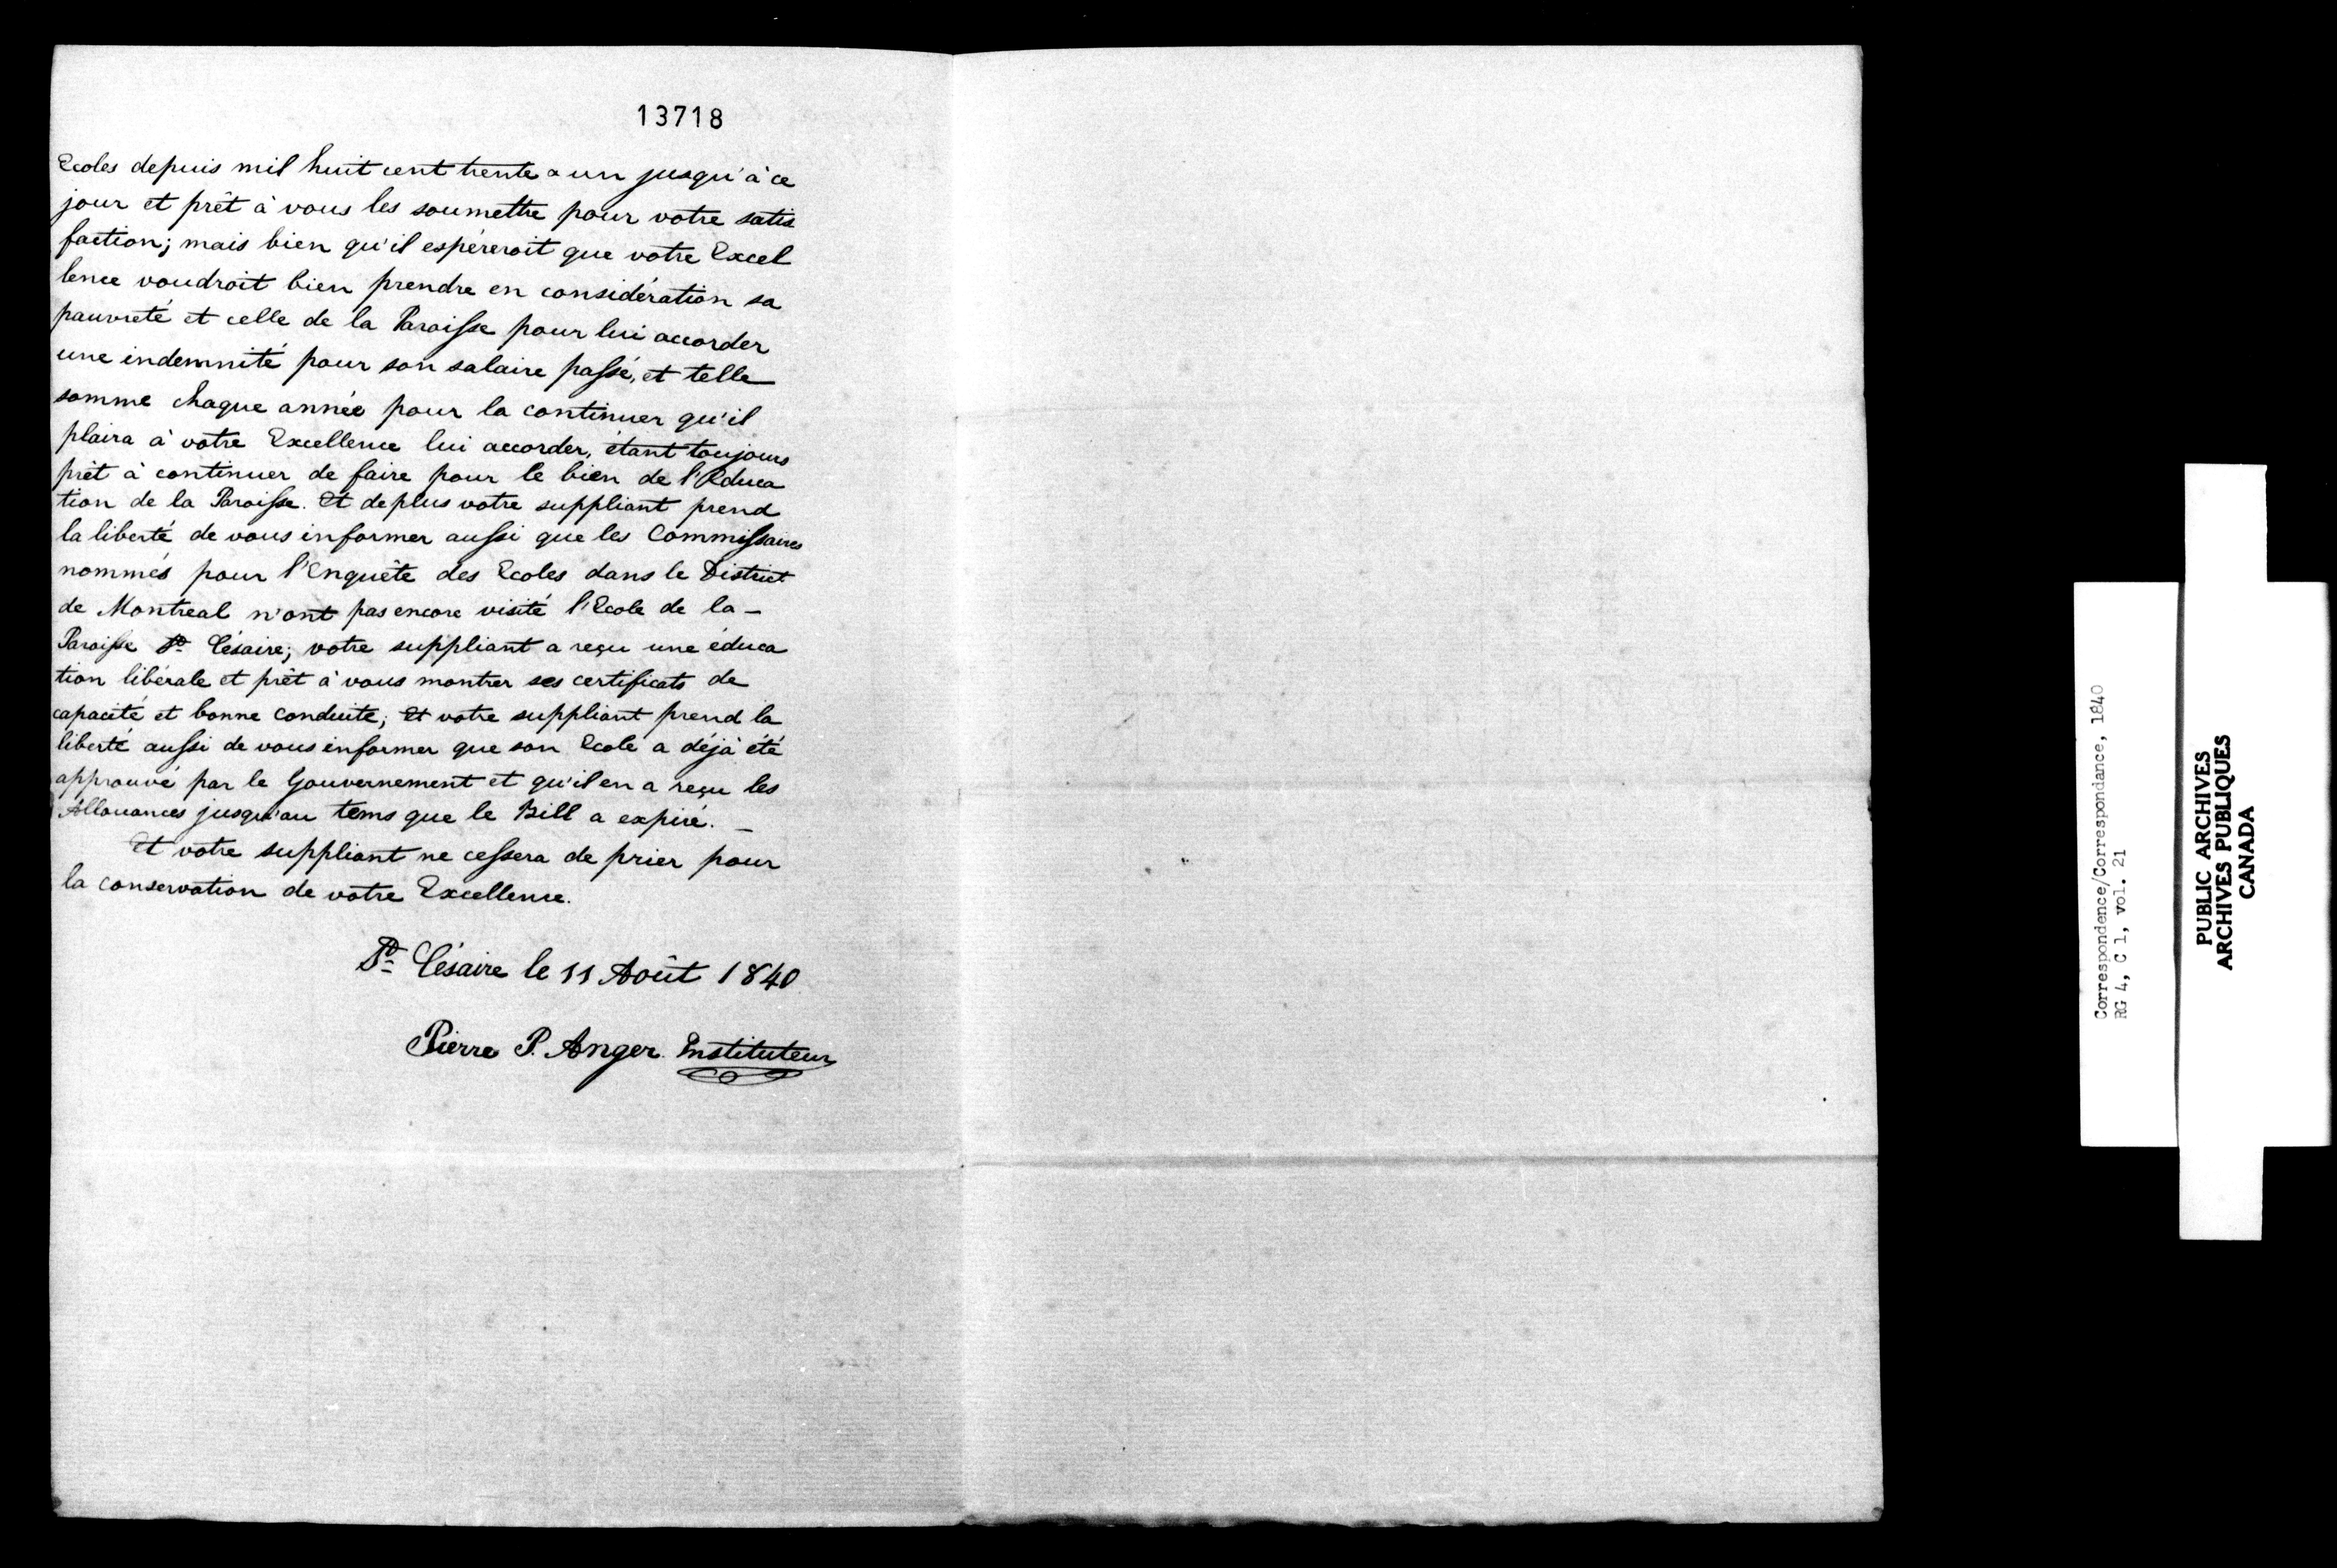 13718
Ecoles depuis mil huit cent trente & un jusqu'à ce
jour et prêt à vous les soumettre pour votre satis
faction; mais bien qu'il espéreroit que votre Excel
lence voudroit bien prendre en considération sa
pauvreté et celle de la Paroisse pour lui accorder
une indemnité pour son salaire passé, et telle
somme chaque année pour la continuer qu'il
plaira à votre Excellence lui accorder, étant toujours
prèt à continuer de faire pour le bien de l'Educa
tion de la Paroisse. Et de plus votre suppliant prend
la liberté de vous informer aussi que les Commissaires
nommés pour l'Enquête des Ecoles dans le District
de Montreal n'ont pas encore visité l'Ecole de la -
Paroisse St Césaire; votre suppliant a reçu une éduca
tion libérale et prêt à vous montrer ses certificats de
capacité et bonne conduite; Et votre suppliant prend la
liberté aussi de vous informer que son Ecole a déjà été
approuvé par le Gouvernement et qu'il en a reçu les
Allouances jusqu'au tems que le Bill a expiré. -
Et votre suppliant ne cessera de prier pour
la conservation de votre Excellence.
St Césaire le 11 Août 1840
Pierre P. Anger Instituteur
Correspondence/Correspondance, 1840
RG 4, C 1, vol. 21
PUBLIC ARCHIVES
ARCHIVES PUBLIQUES
CANADA